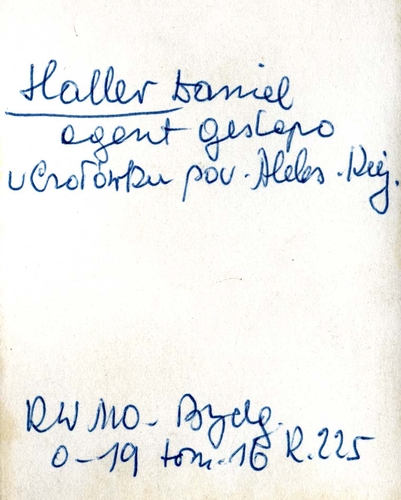 Haller Daniel
agent gestapo
u Czołówku pov. Aleks. Kuj.
KW MO - Bydg.
0-19 tom. 16 K. 225